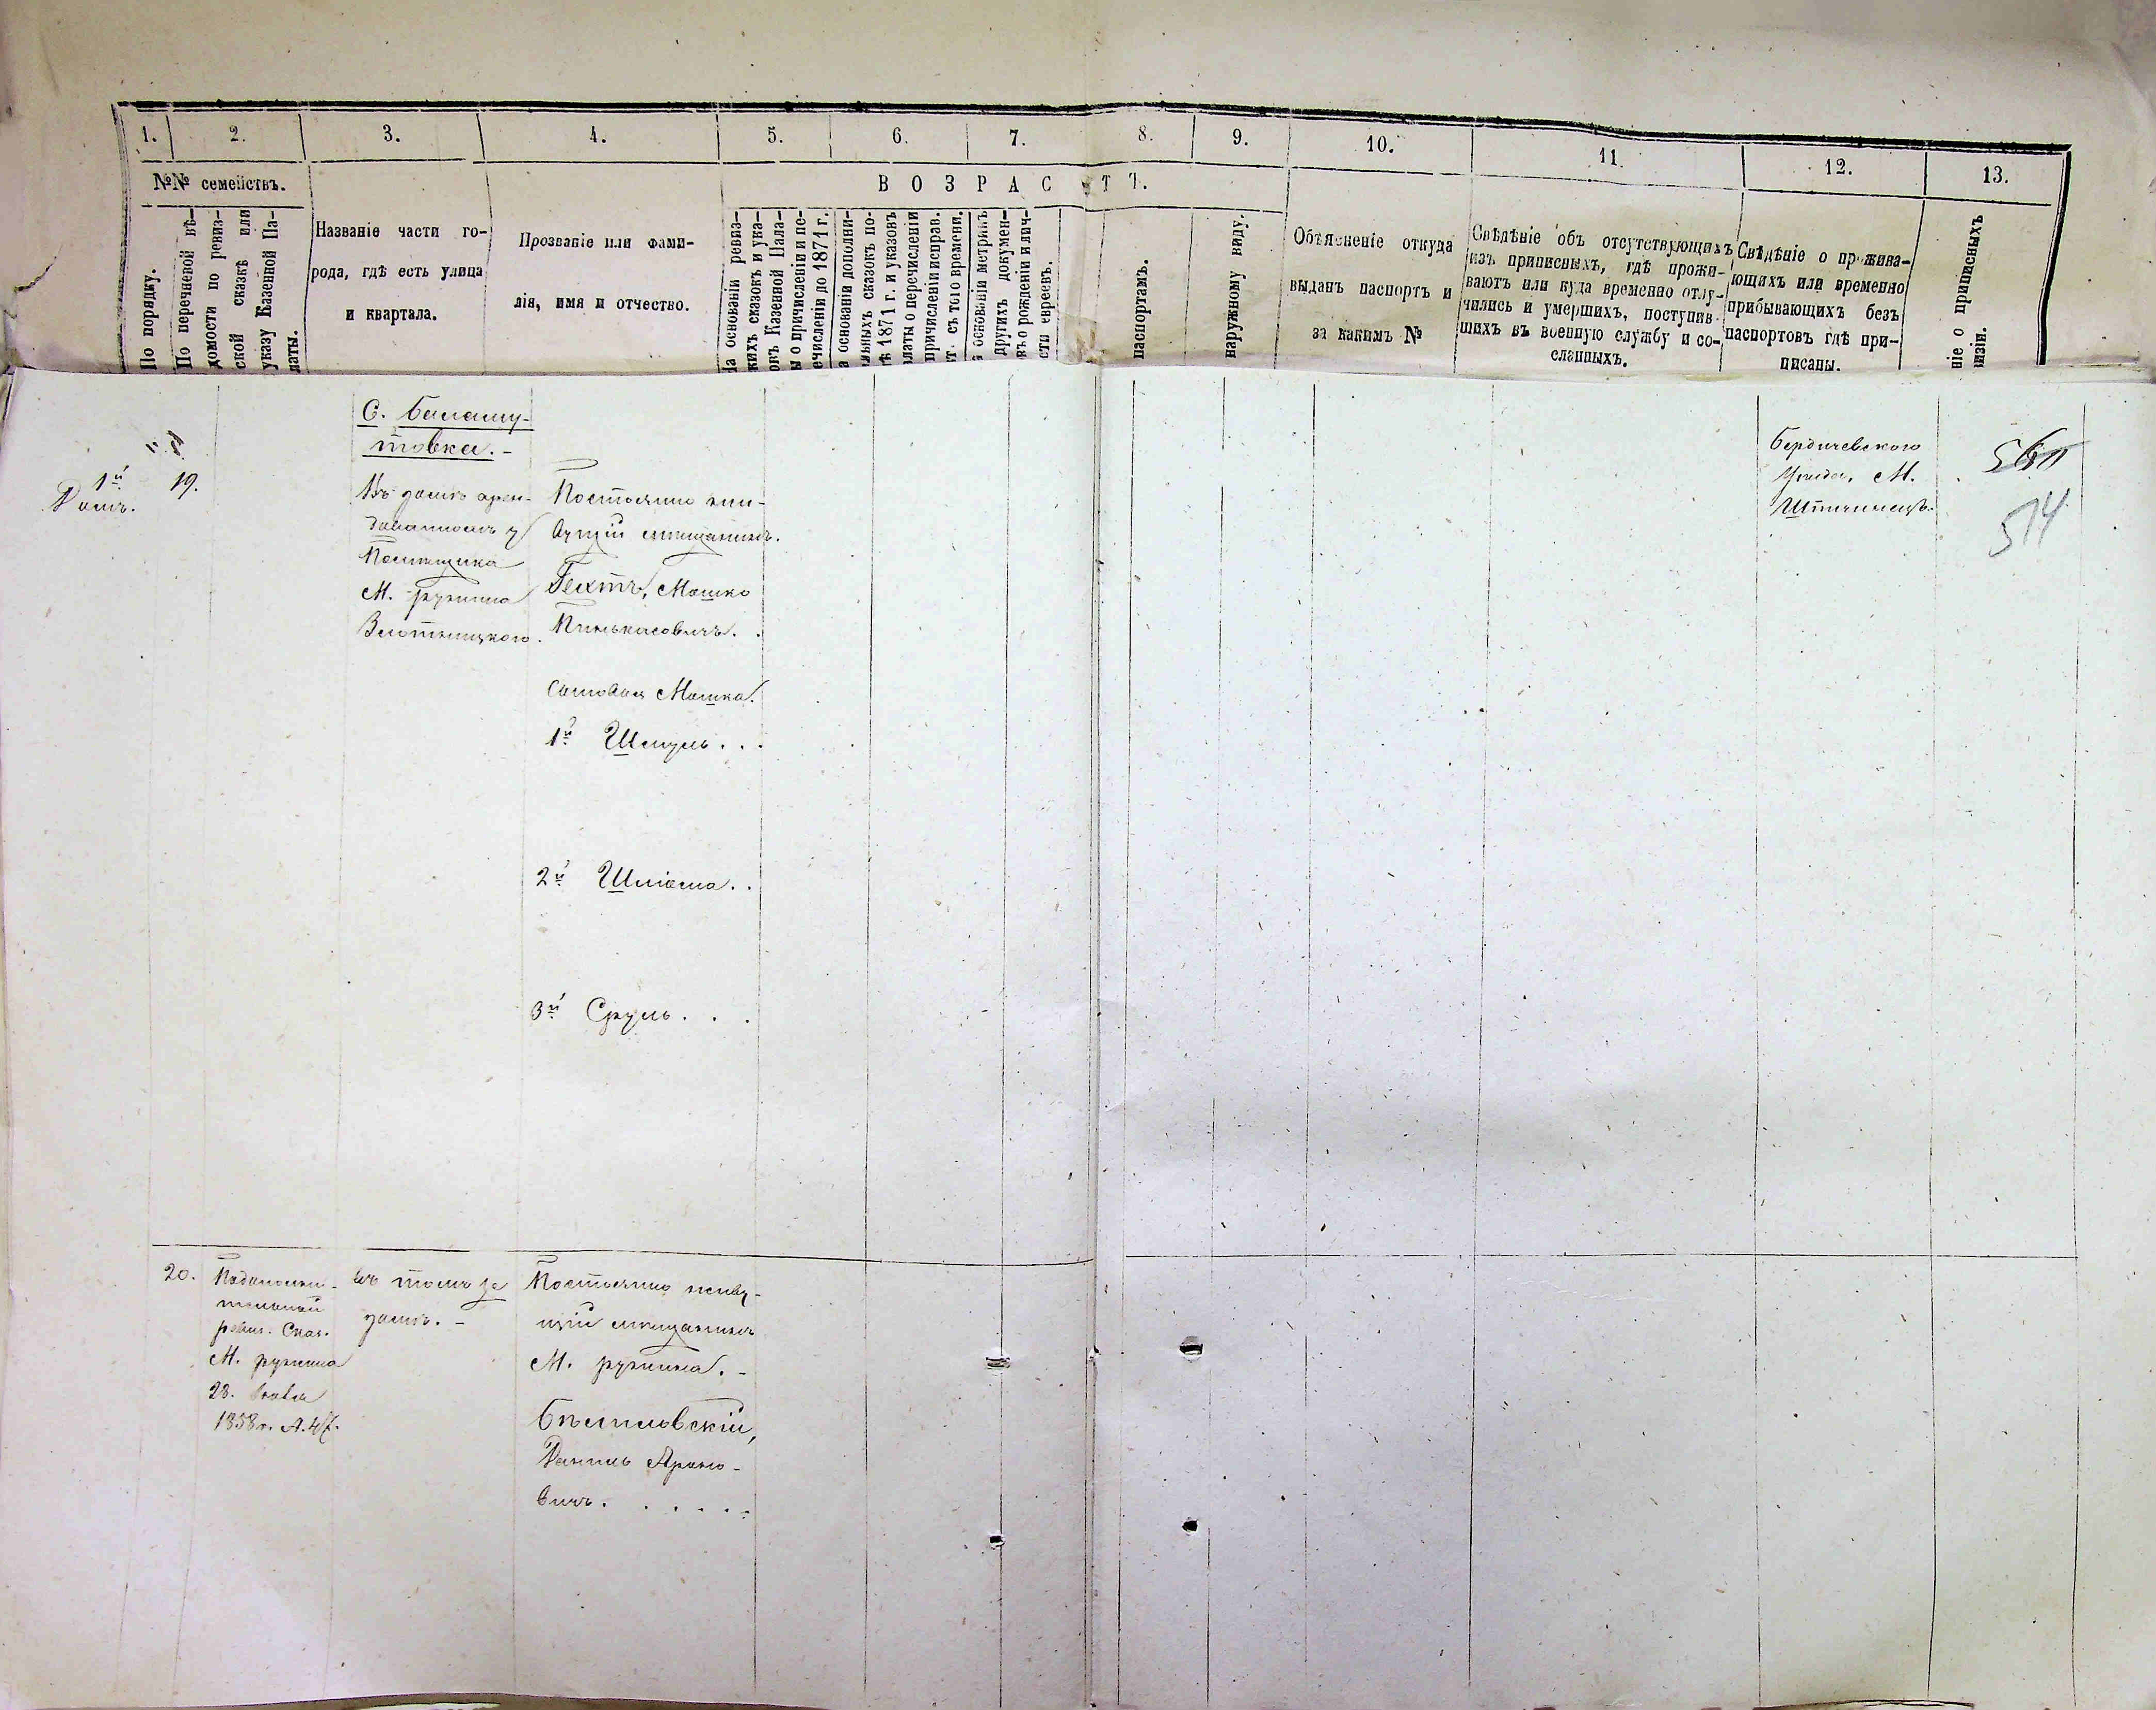 1.
2.
3.
4.
5.
6.
7.
8.
9.
10.
11.
12.
13.
№№ семействъ.
ВОЗРАСТЪ.
По порядку.
По перечневой вѣ-
домости по ревиз-
ской сказкѣ или
указу Казенной Па-
латы.
Названіе части го-
рода, гдѣ есть улица
и квартала.
Прозваніе или фами-
лія, имя и отчество.
На основаніи ревиз-
скихъ сказокъ и ука-
зовъ Казенной Пала-
ты о причисленіи и пе-
речисленіи до 1871 г.
На основаніи дополни-
тельныхъ сказокъ по-
слѣ 1871 г. и указовъ
Палаты о перечисленіи
и причисленіи исправ.
лѣт. съ того времени.
На основаніи метрикъ
и другихъ докумен-
товъ о рожденіи и лич-
ности евреевъ.
паспортамъ.
наружному виду.
Объясненіе откуда
выданъ паспортъ и
за какимъ №
Свѣдѣніе объ отсутствующихъ
изъ приписныхъ, гдѣ прожи-
ваютъ или куда временно отлу-
чились и умершихъ, поступив-
шихъ въ военную службу и со-
сланныхъ.
Свѣдѣніе о прожива-
ющихъ или временно
прибывающихъ безъ
паспортовъ гдѣ при-
писаны.
ніе о приписныхъ
визіи.
С. Балашу-
товка.-
1й
Домъ.
19.
Въ домѣ арен-
дованномъ у
Помѣщика
М. Ружина
Злотницкого.
Постоянно жи-
вущій мѣщанинъ.
Гехтъ, Мошко
Пинькасовичъ.
Сыновья Мошка.
1й Шмуль...
2й Шліома..
3й Сруль...
Бердичевского
Уѣзда, М.
574
20.
Подополни-
тельной
ревиз. Сказ.
М. ружина
28.
1858 г.
въ томъ же
домѣ.-
Постоянно живу-
щій мѣщанинъ
М. ружина.-
Бѣлиловскій,
Даниль Ароно-
вичъ......